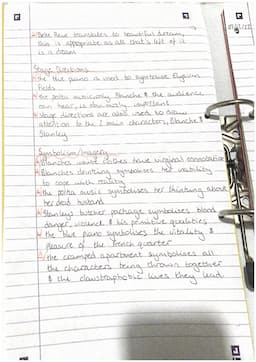 Belle Reve translates to beautiful dream,
this is appropriate as all that's left of it
is a dream
Stage Directions
the blue piano is used to symbolise Elysian
Fields
the polka music only Blanche & the audience
can hear, is obviously
Stage directions are also used to draw
attention to the 2 main characters, Blanche &
Stanley
Symbolism/Imagery
Blanches white clothes have virginal connotations
Blanches drinking symbolises her inability
to cope with reality
the polka music symbolises her thinking about
her dead husband
Stanleys butcher package symbolises blood
danger, violence & his primitive qualities
the blue piano symbolises the vitality &
pleasure of the french quarter
the cramped apartment symbolises all
the characters being thrown together
& the claustrophobic lives they lead